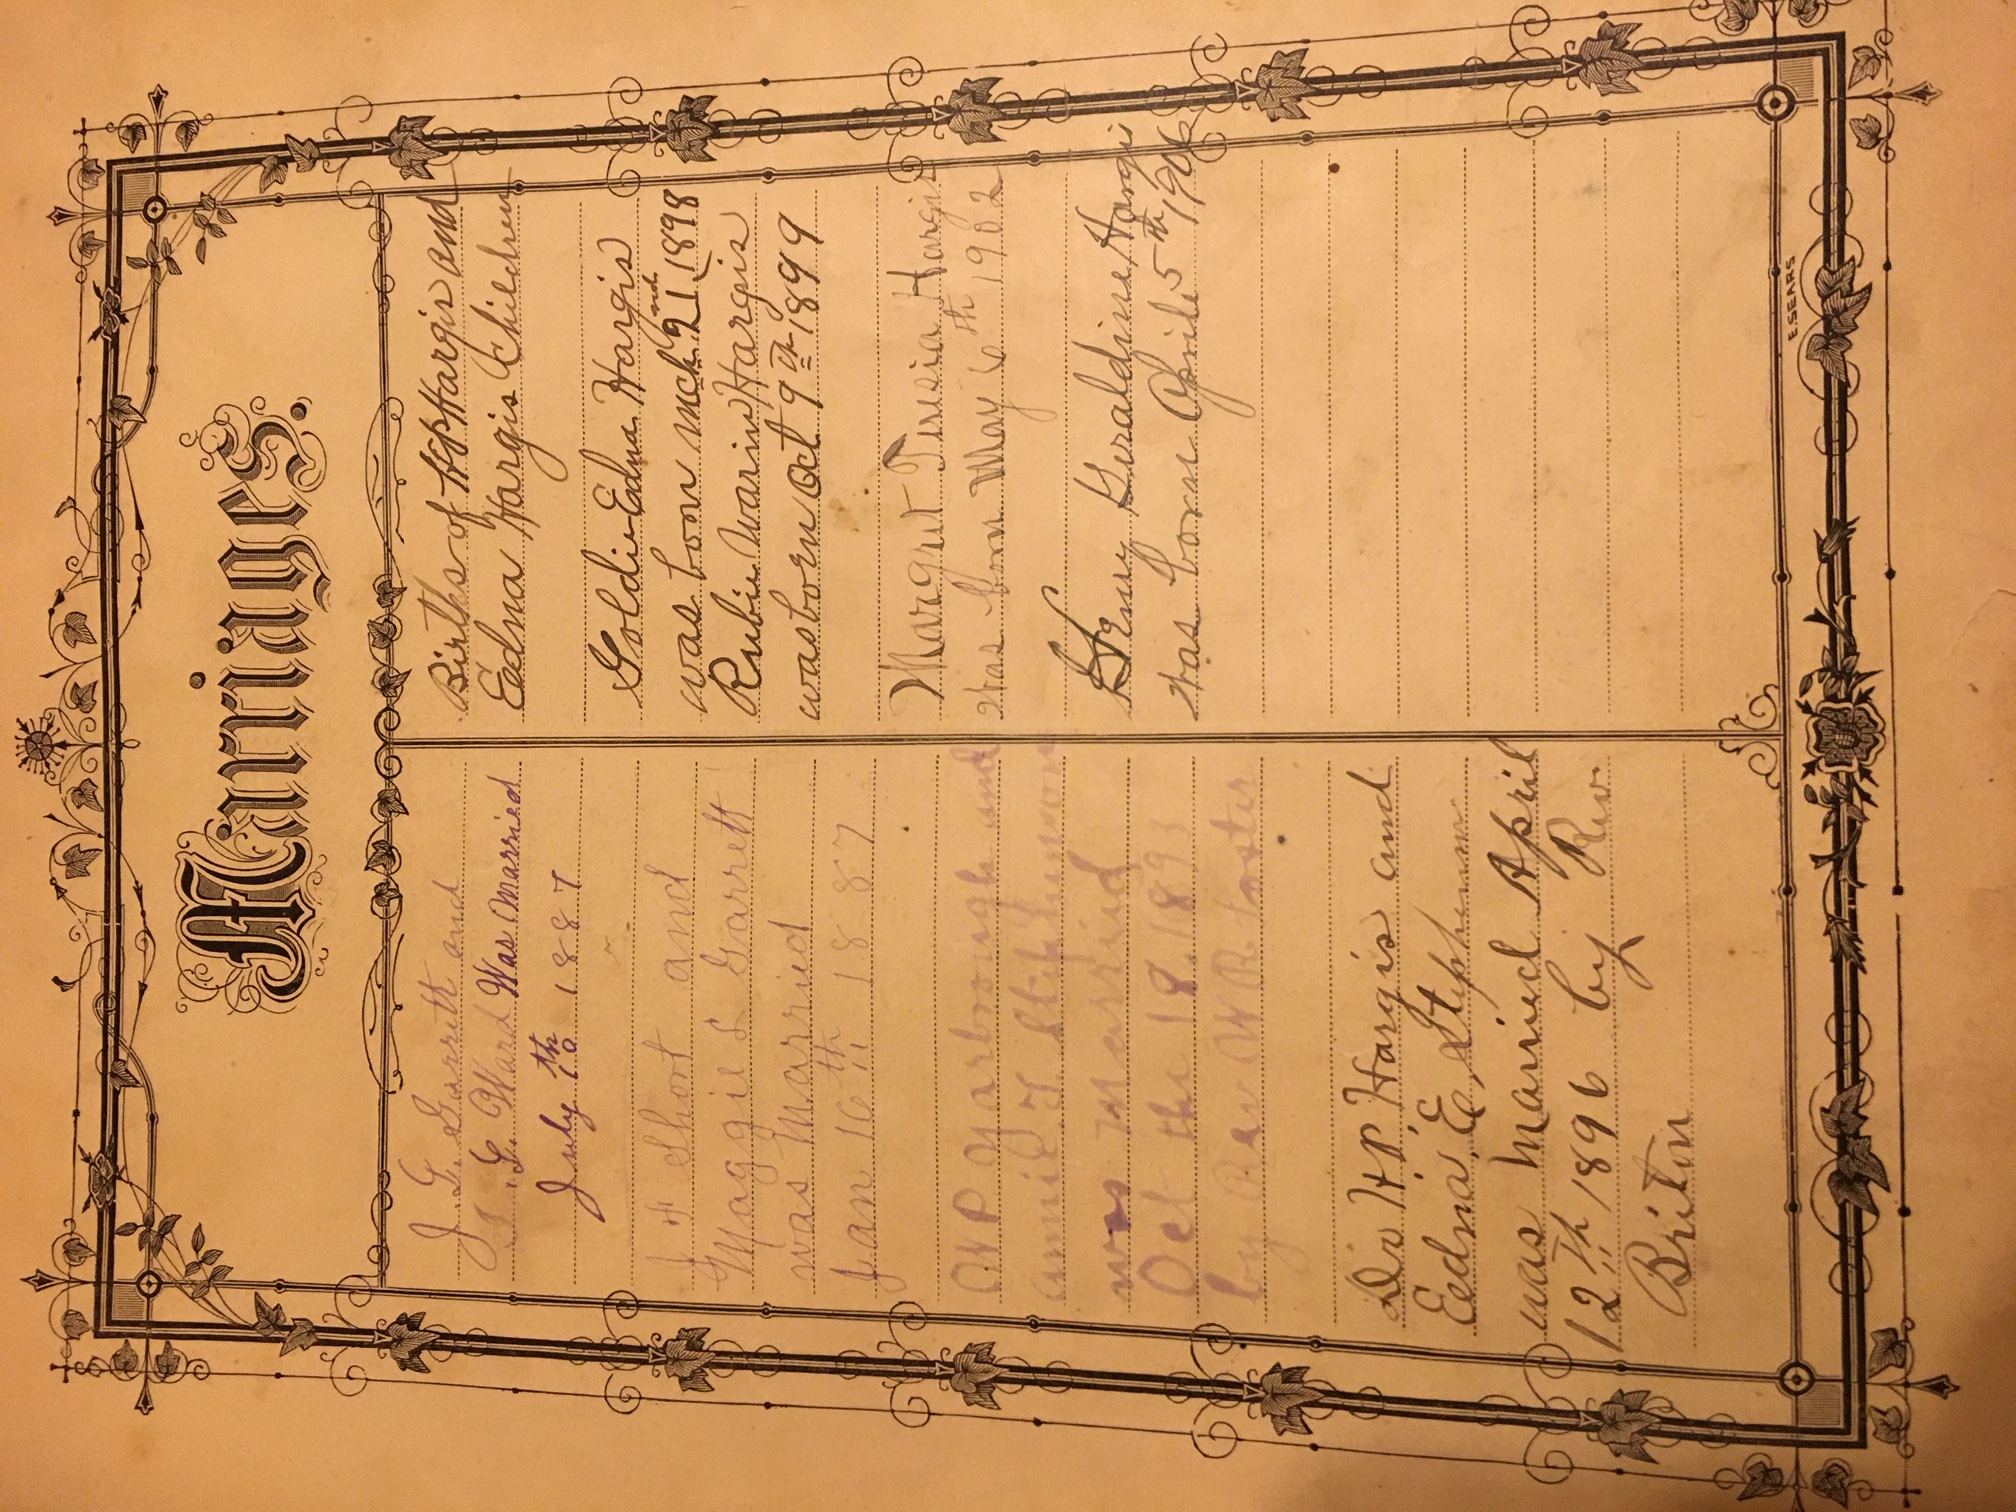 Marriages.
J. G. Garrett and
L. G. Ward Was Married
July 10th 1887
J H Short and
Maggie L Garrett
was Married
Jan 16th 1887
O W P Yarborough and
annie J Stephenson
was married
Oct the 18. 1893
by Rev W R Foster
Dr H.P. Hargis and
Eedna E Stephenson
was Married April
12th 1896 by Rev
Briton
Births of H P Hargis and
Eedna Hargis Children
Goldie Edna Hargis
was born mch 2nd 1898
Rubie Warin Hargis
was born Oct 9th 1899
Margret Tresia Hargis
Was born May 6th 1902
Henry Geraldine Hargis
was born Aprile 5th 1906
E SEARS